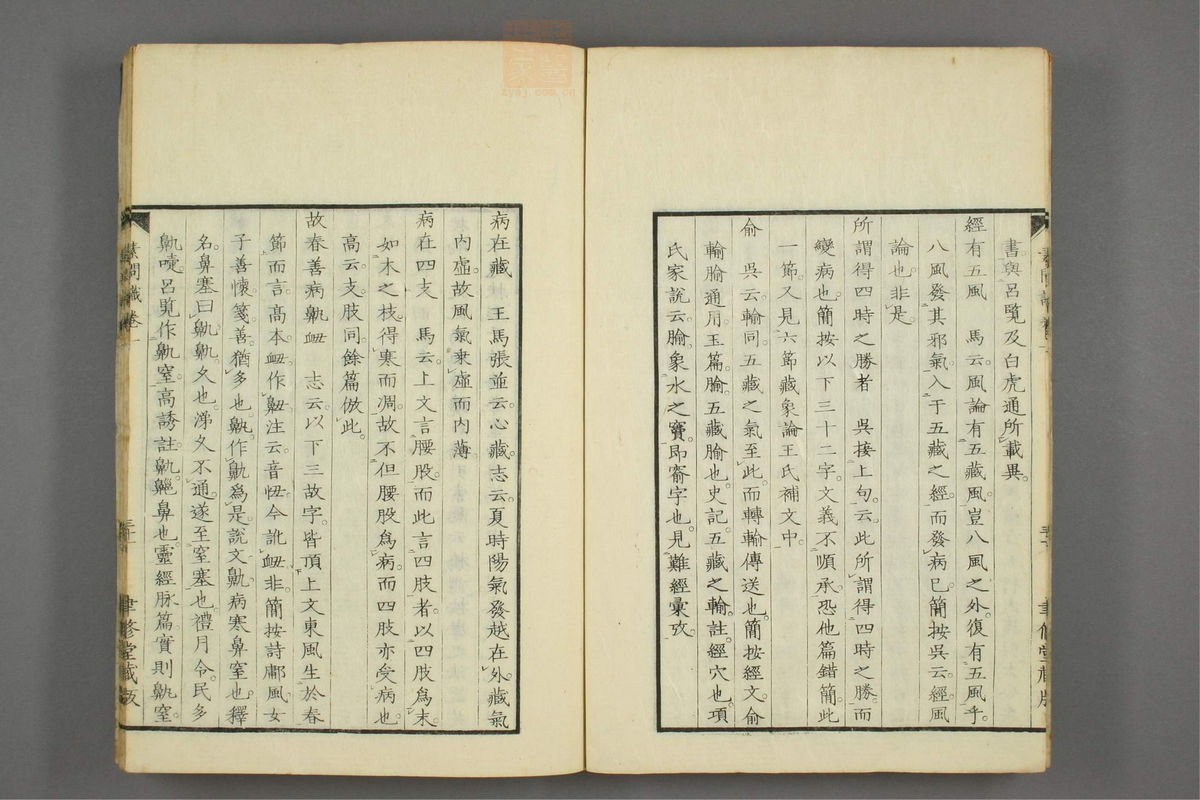 書與呂覽及白虎通所載異。
經有五風　馬云風論有五藏風。豈八風之外。復有五風乎。
八風發其邪氣。入于五藏之經。而發病已。簡按吳云。經風
論也。非是。
所謂得四時之勝者　吳接上句。云此所謂得四時之勝。而
變病也。簡按以下三十二字。文義不順承。恐他篇錯簡。此
一節。又見六節藏象論王氏補文中。
俞　吳云。輸同。五藏之氣至此。而轉輸傳送也。簡按經文俞
輸腧通用。玉篇。腧。五藏腧也。史記。五藏之輸。註。經穴也。項
氏家說云。腧。象水之竇。即窬字也。見難經彙攷。
病在藏　王馬張並云。心藏。志云。夏時陽氣發越在外。藏氣
内虛。故風氣乘虛而内薄
病在四支　馬云。上文言腰股。而此言四肢者。以四肢爲末。
如木之枝。得寒而凋。故不但腰股爲病。而四肢亦受病也
高云。支肢同。餘篇倣此。
故春善病鼽衄　志云。以下三故字。皆頂上文東風生於春
節而言。高本衄。作䶊。注云。音忸。今訛衄。非。簡按詩鄘風。女
子善懷。箋。善。猶多也。鼽。作鼽爲是。說文。鼽。病寒鼻窒也。釋
名。鼻塞曰鼽。鼽。久也。涕久不通。遂至窒塞也。禮月令。民多
鼽嚏。呂覽作鼽窒。高誘註。鼽。齆鼻也。靈經脉篇。實則鼽窒。
素問識卷一
聿修堂藏版